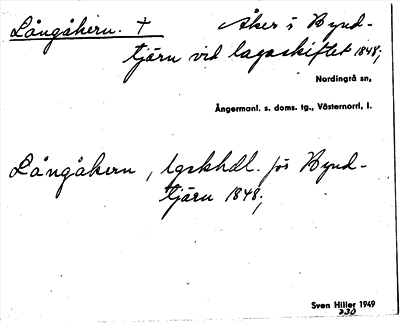 Långåkern. † Åker i Rynd-
tjärn vid lagaskiftet 1848;
Nordingrå sn,
Ångermanl. s. doms. tg., Västernorrl, l.
Långåkern, lgskhdl. för Rynd-
tjärn 1848;
Sven Hiller 1949
230